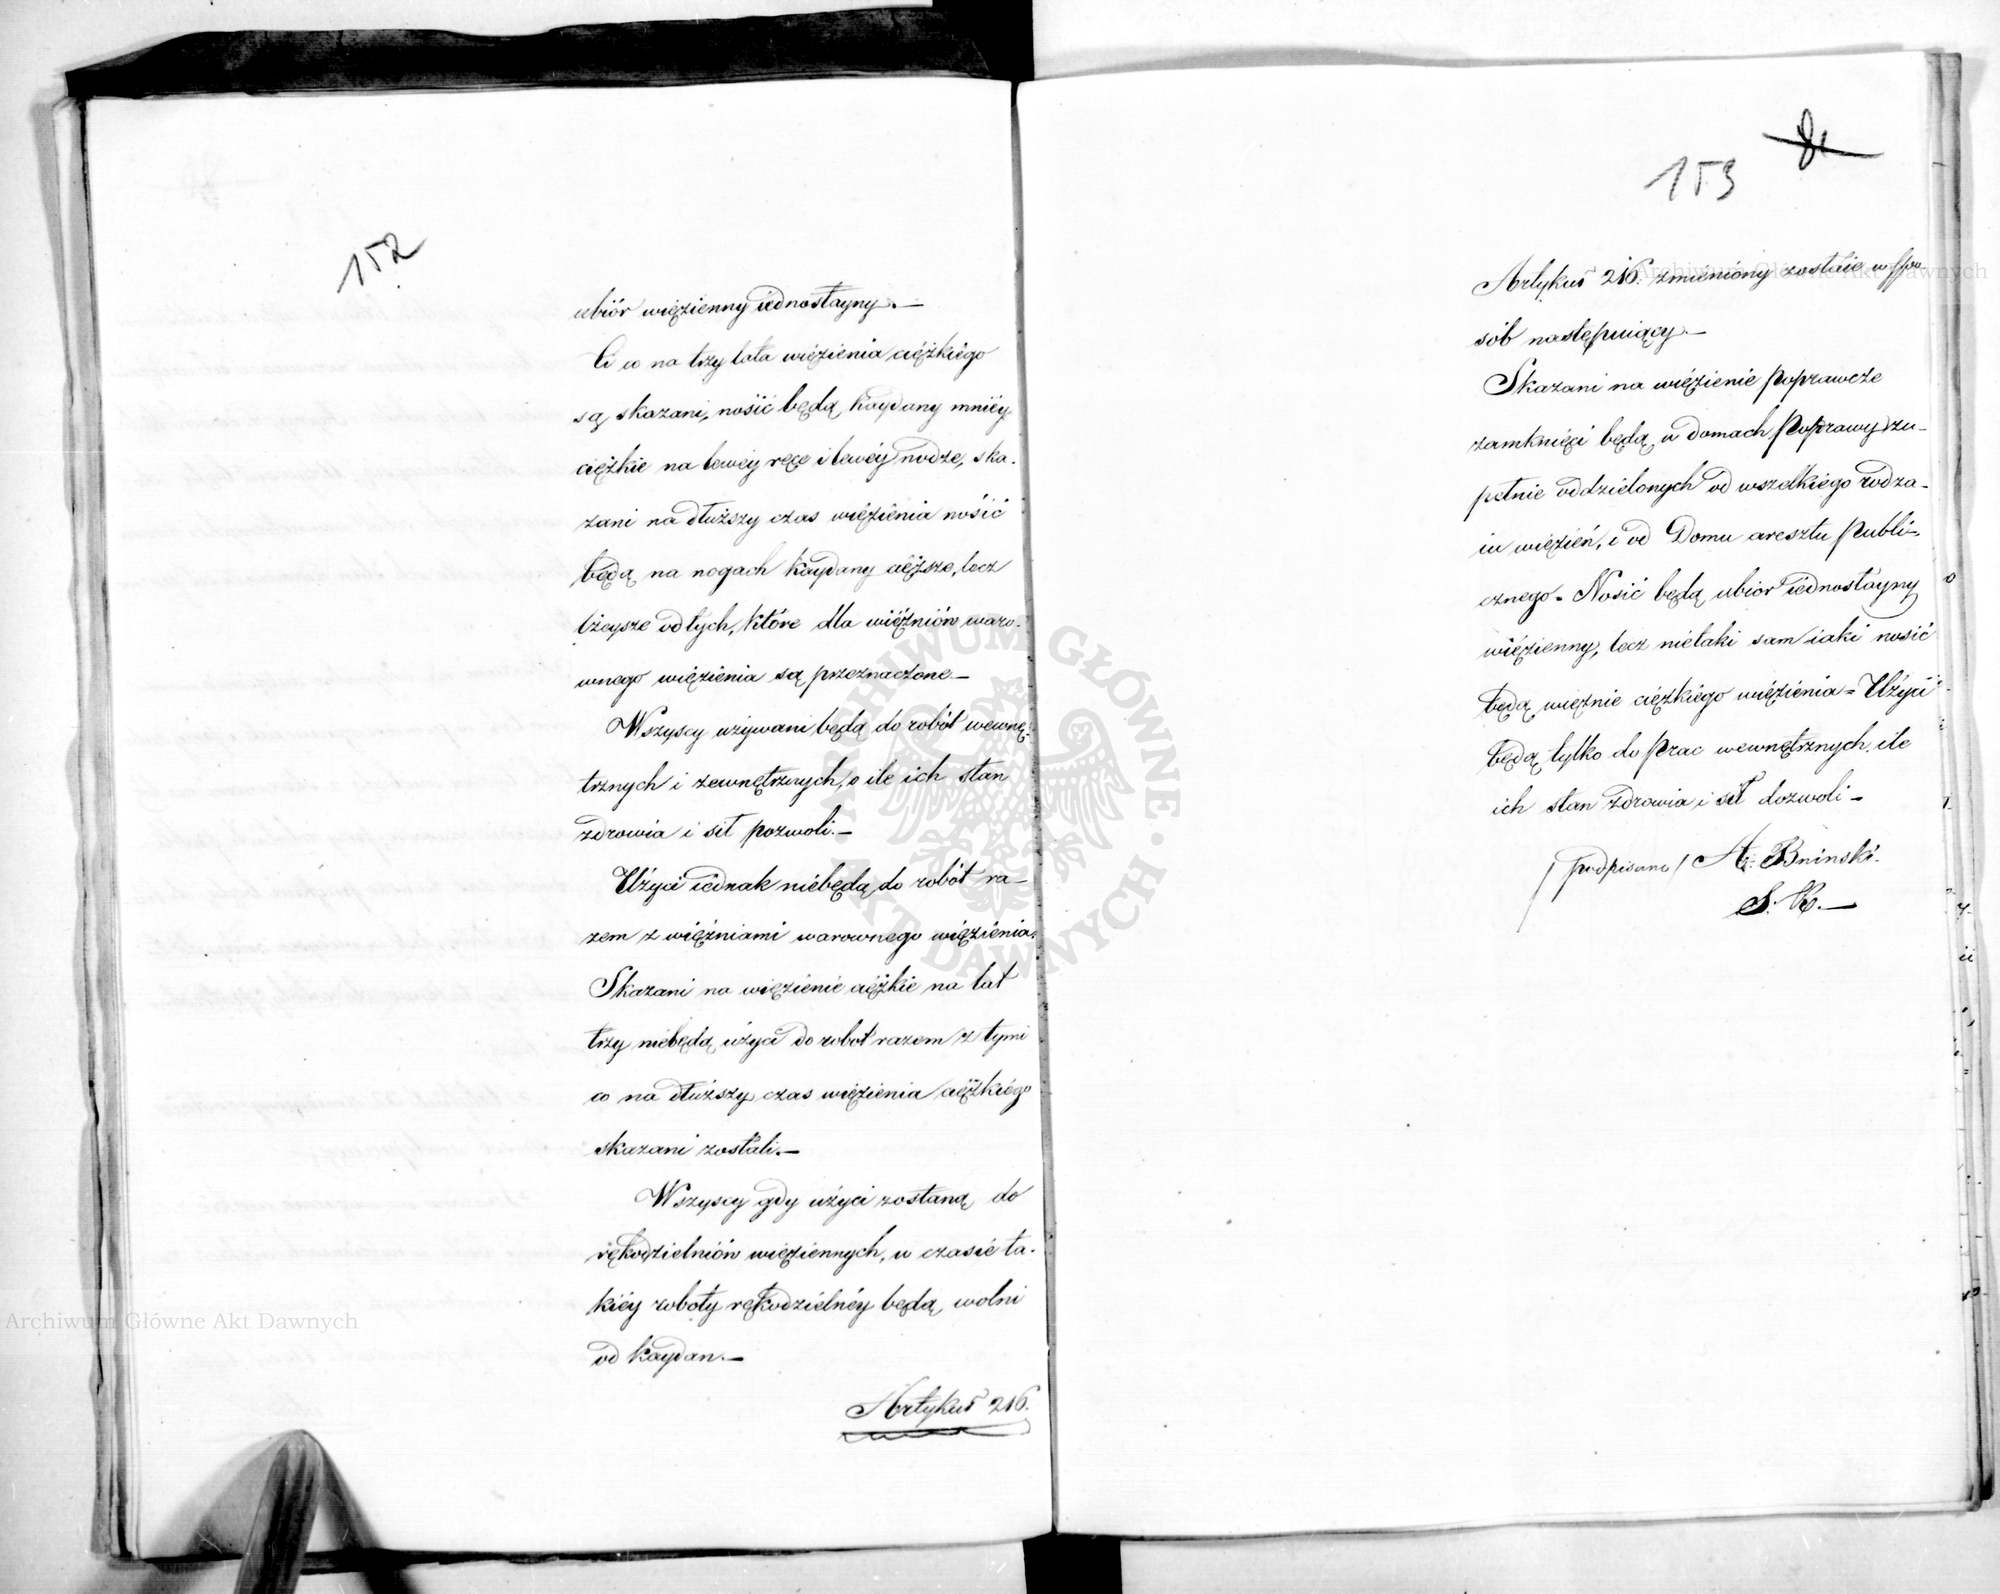 152
ubiór więzienny iednostayny.—
Ci co na trzy lata więzienia ciężkiego
są skazani, nosić będą kaydany mniéy
ciężkie na lewéy ręce i lewéy nodze, ska-
zani na dłuższy czas więzienia nosić
będą na nogach kaydany cięższe, lecz
lżeysze od tych, które dla więźniów waro-
wnego więzienia są przeznaczone—
Wszyscy używani będą do robót wewnę-
trznych i zewnętrznych, o ile ich stan
zdrowia i sił pozwoli.—
Użyci iednak niebędą do robót ra-
zem z więźniami warownego więzienia.
Skazani na więzienie ciężkie na lat
trzy niebędą użyci do robot razem z tymi
co na dłuższy czas więzienia ciężkiego
skazani zostali.—
Wszyscy gdy użyci zostaną do
rękodzielniów więziennych, w czasie ta-
kiéy roboty rękodzielnéy będą wolni
od kaydan.—
Artykuł 216.
81
153
Artykuł 216. zmieniony zostaie w spo-
sób następuiący—
Skazani na więzienie poprawcze
zamknięci będą w domach Poprawy zu-
pełnie oddzielonych od wszelkiego rodza-
iu więzień, i od Domu aresztu Publi-
cznego. Nosić będą ubior iednostayny
więzienny, lecz nietaki sam iaki nosić
będą więźnie ciężkiego więzienia = Użyci
będą tylko do prac wewnętrznych ile
ich stan zdrowia i sił dozwoli—
/podpisano/ A. Bninski.
S. K.—
Archiwum Główne Akt Dawnych
Archiwum Główne Akt Dawnych
ARCHIWUM GŁÓWNE · AKT DAWNYCH ·